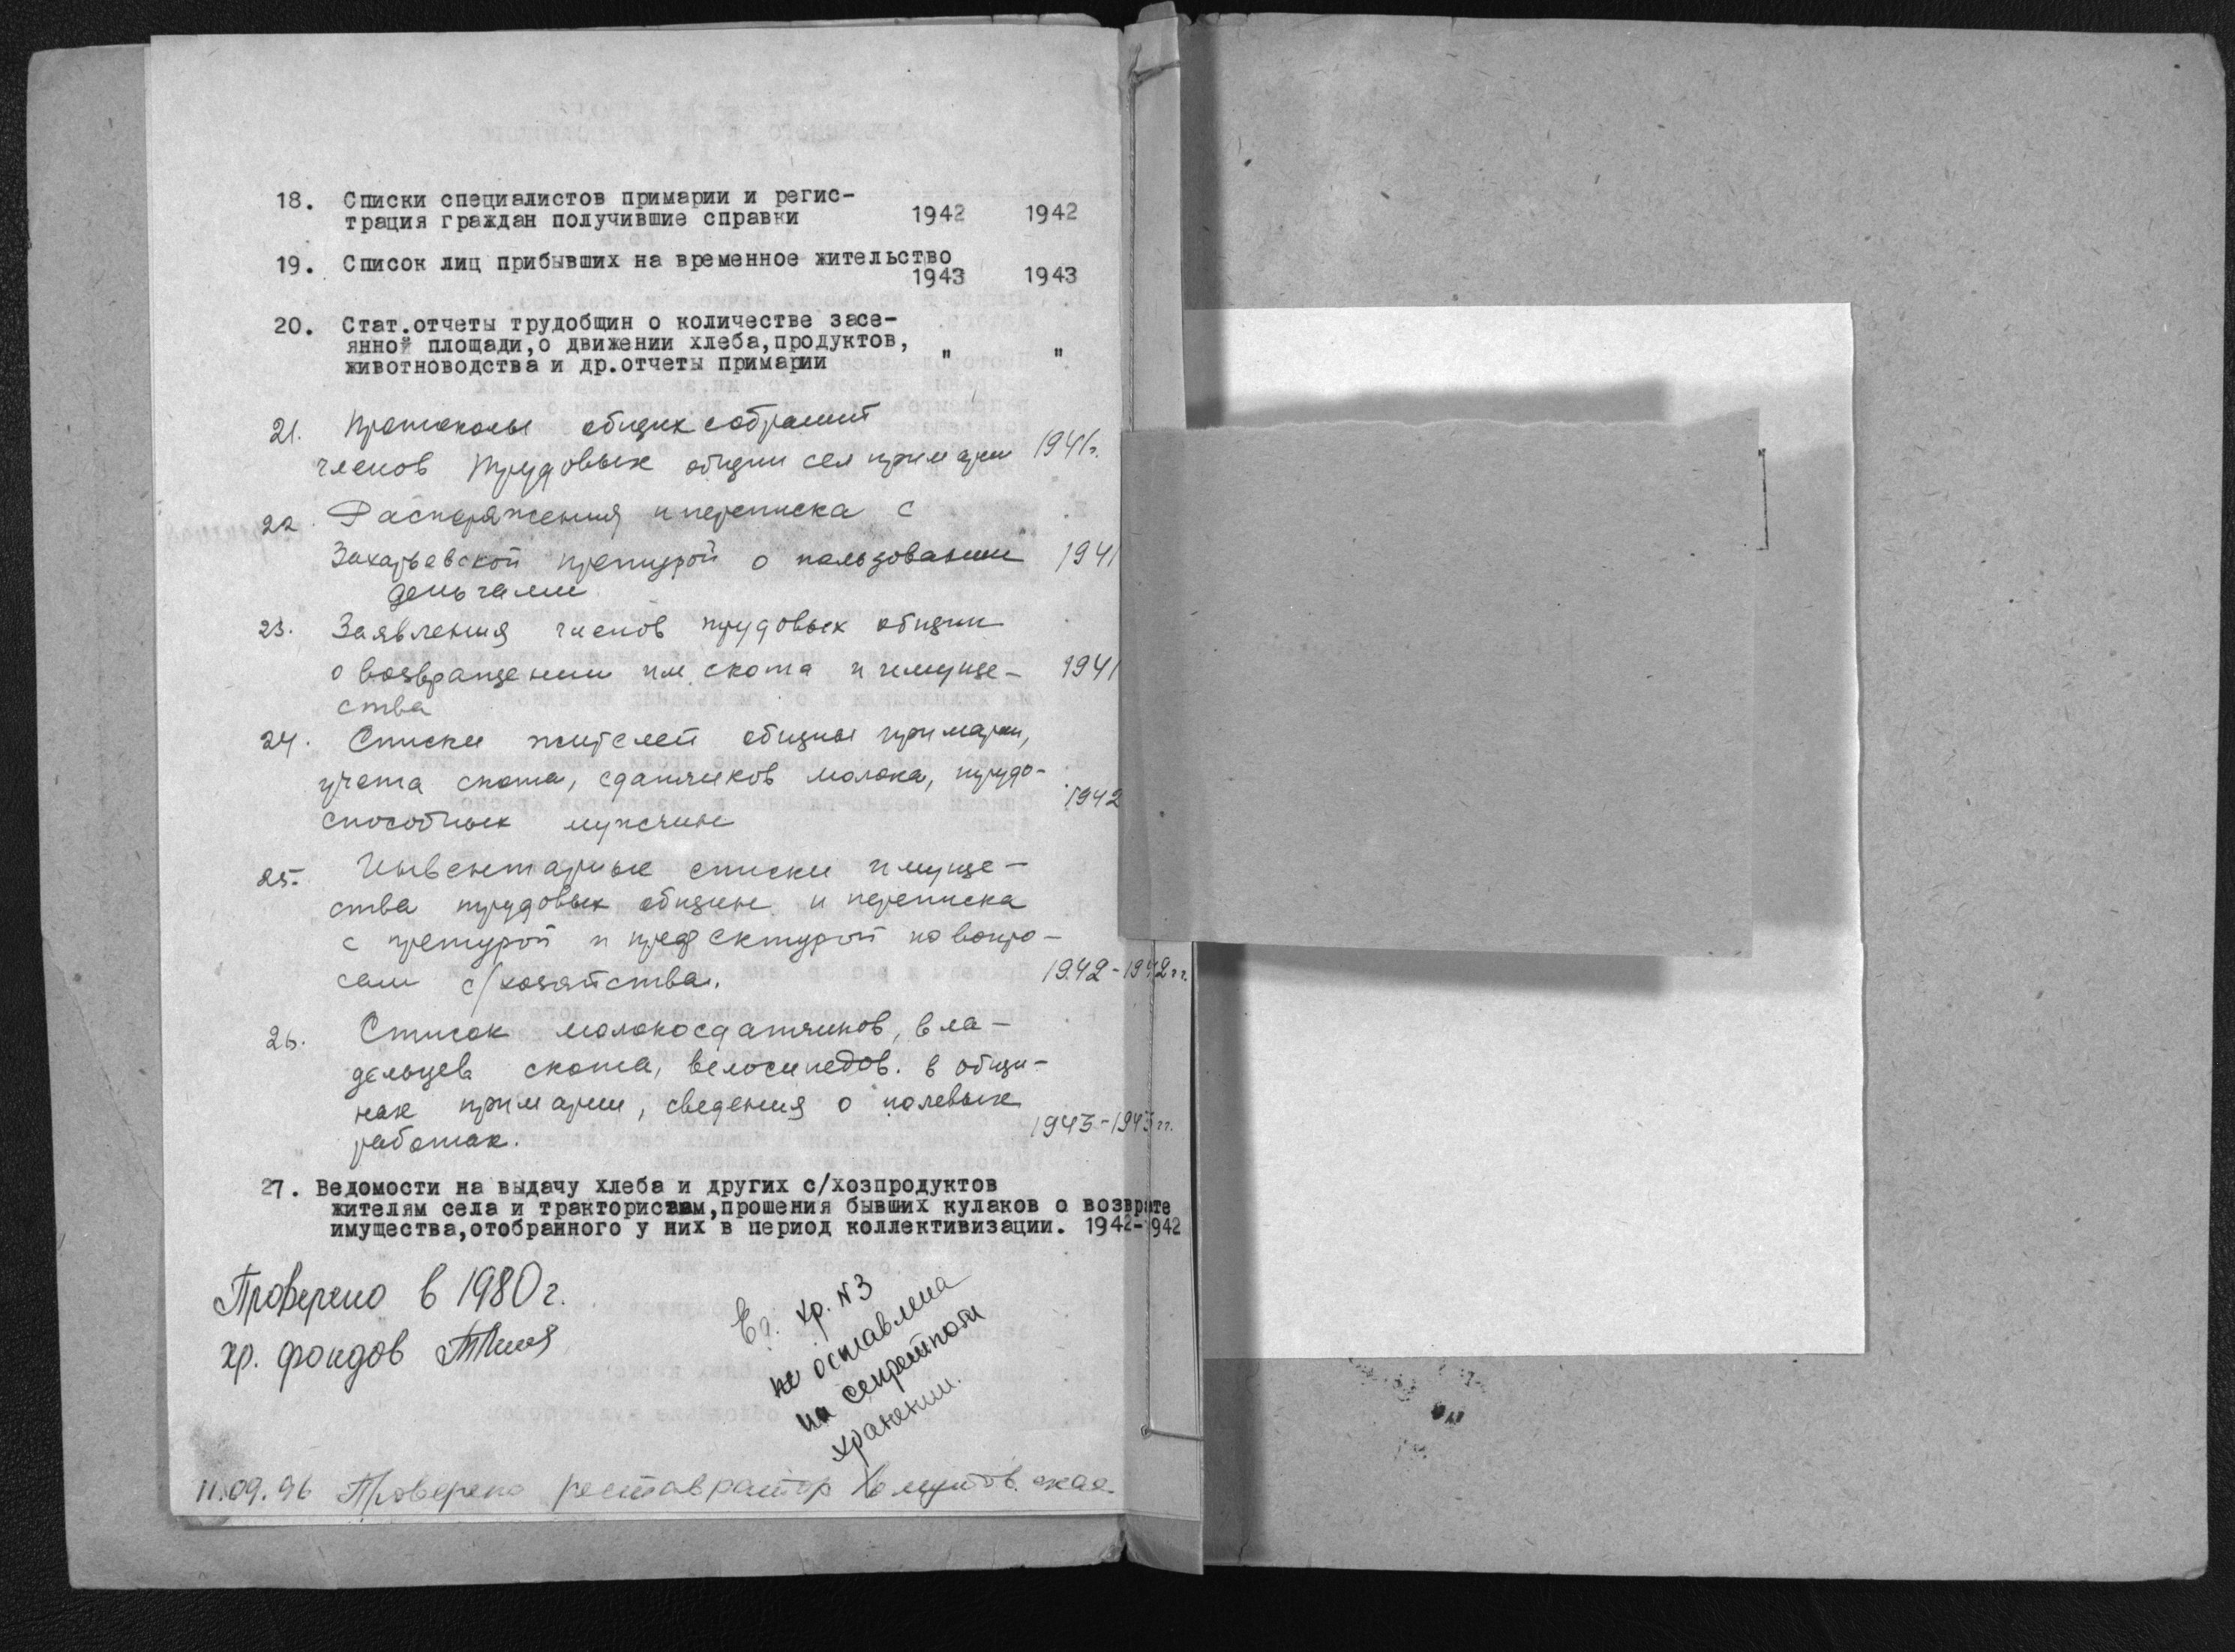 18. Списки специалистов примарии и регис-
трация граждан получившие справки 1942 1942
19. Список лиц прибывших на временное жительство
1943 1943
20. Стат.отчеты трудобщин о количестве засе-
янной площади,о движении хлеба,продуктов,
животноводства и др.отчеты примарии " "
21. Протоколы общих собраний
членов трудовых общин сел примарии 1941г.
22. Распоряжения и переписка с
Захарьевской претурой о пользовании 1941
деньгами
23. Заявления членов трудовых общин
о возвращении им скота и имуще- 1941
ства
24. Списки жителей общины примарии,
учета скота, сдатчиков молока, трудо-
способных мужчин 1942
25. Инвентарные списки имуще-
ства трудовых общин и переписка
с претурой и префектурой по вопро-
сам с/хозяйства. 1942-1942гг.
26. Список молокосдатчиков, вла-
дельцев скота, велосипедов. в общи-
нах примарии, сведения о полевых
работах. 1943-1943гг.
27. Ведомости на выдачу хлеба и других с/хозпродуктов
жителям села и трактористам,прошения бывших кулаков о возврате
имущества,отобранного у них в период коллективизации. 1942-1942
Проверено в 1980г.
хр. фондов
Ег. хр. N3
не оставлена
на секретном
хранении.
11.09.96 Проверено реставратор Хомутовская